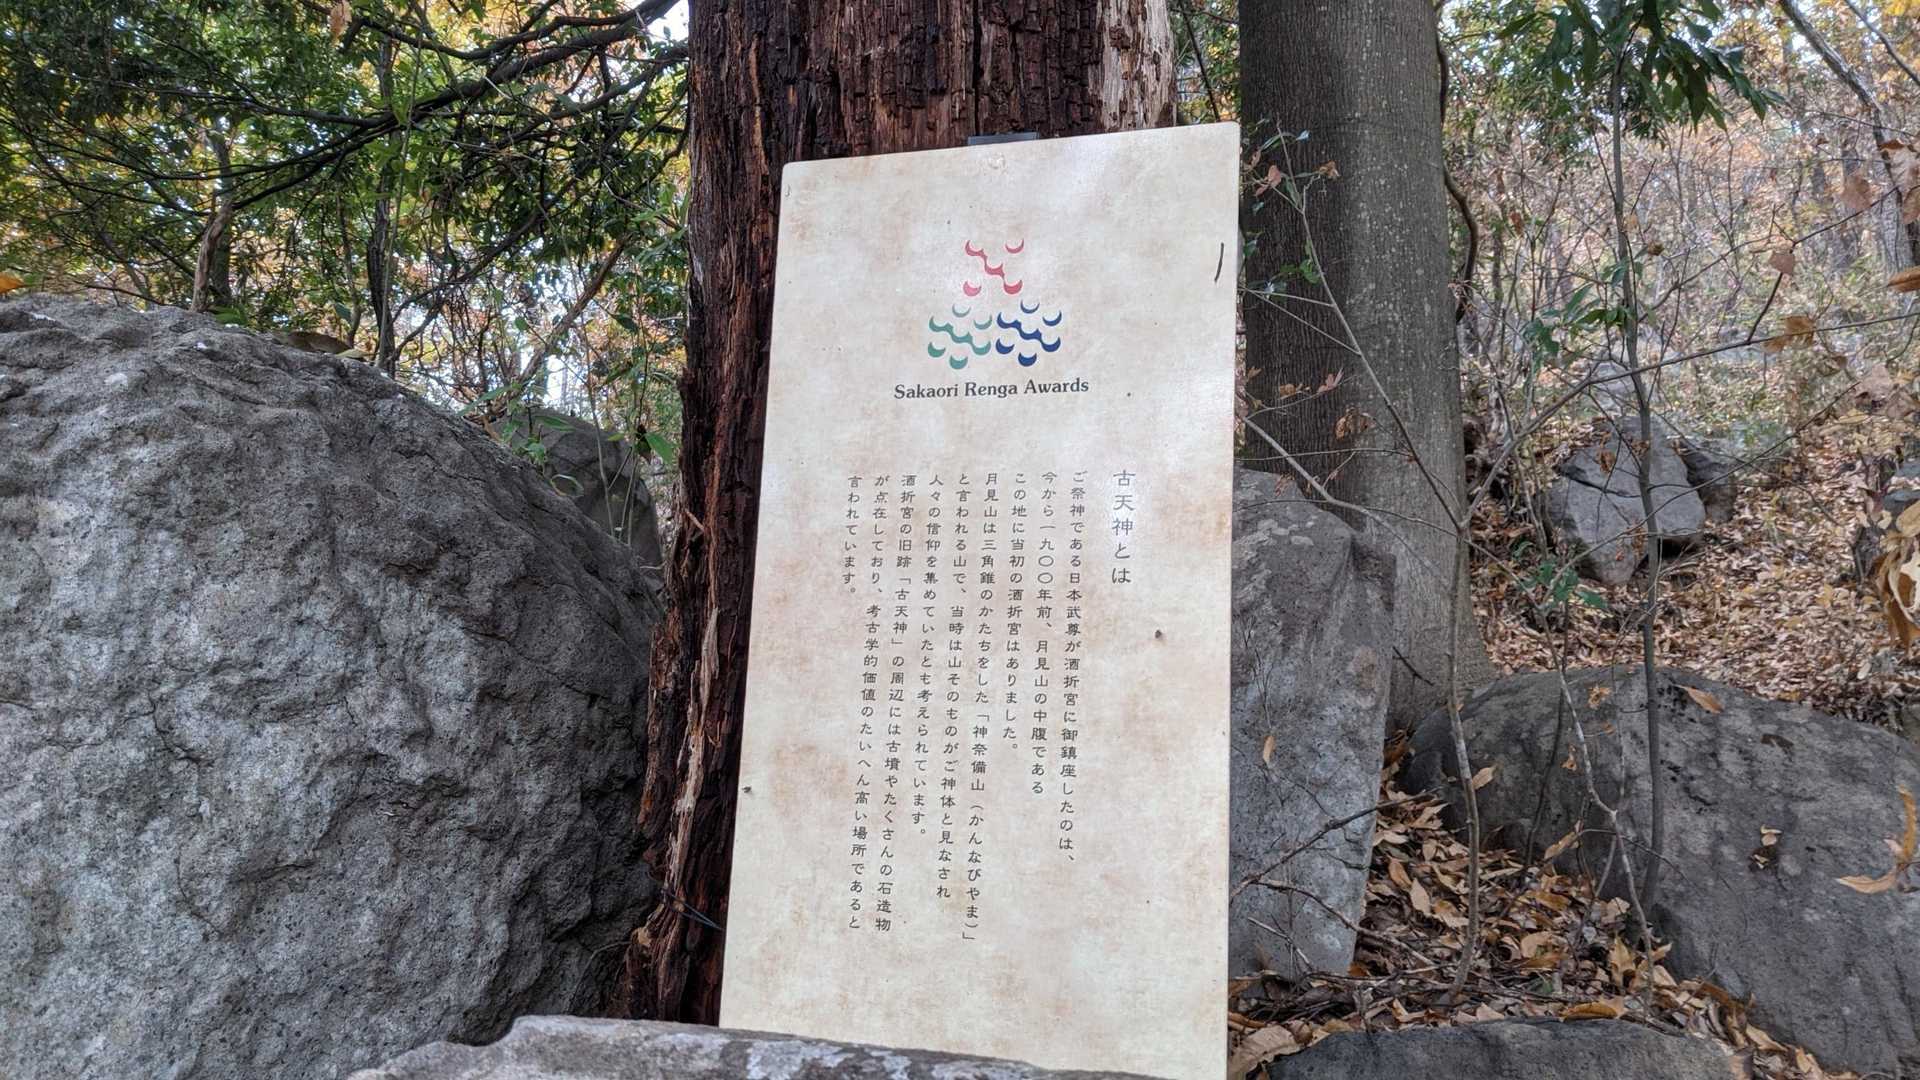 Sakaori Renga Awards
古天神とは
ご祭神である日本武尊が酒折宮に御鎮座したのは、
今から一九〇〇年前、月見山の中腹である
この地に当初の酒折宮はありました。
月見山は三角錐のかたちをした「神奈備山（かんなびやま）」
と言われる山で、当時は山そのものがご神体と見なされ
人々の信仰を集めていたとも考えられています。
酒折宮の旧跡「古天神」の周辺には古墳やたくさんの石造物
が点在しており、考古学的価値のたいへん高い場所であると
言われています。